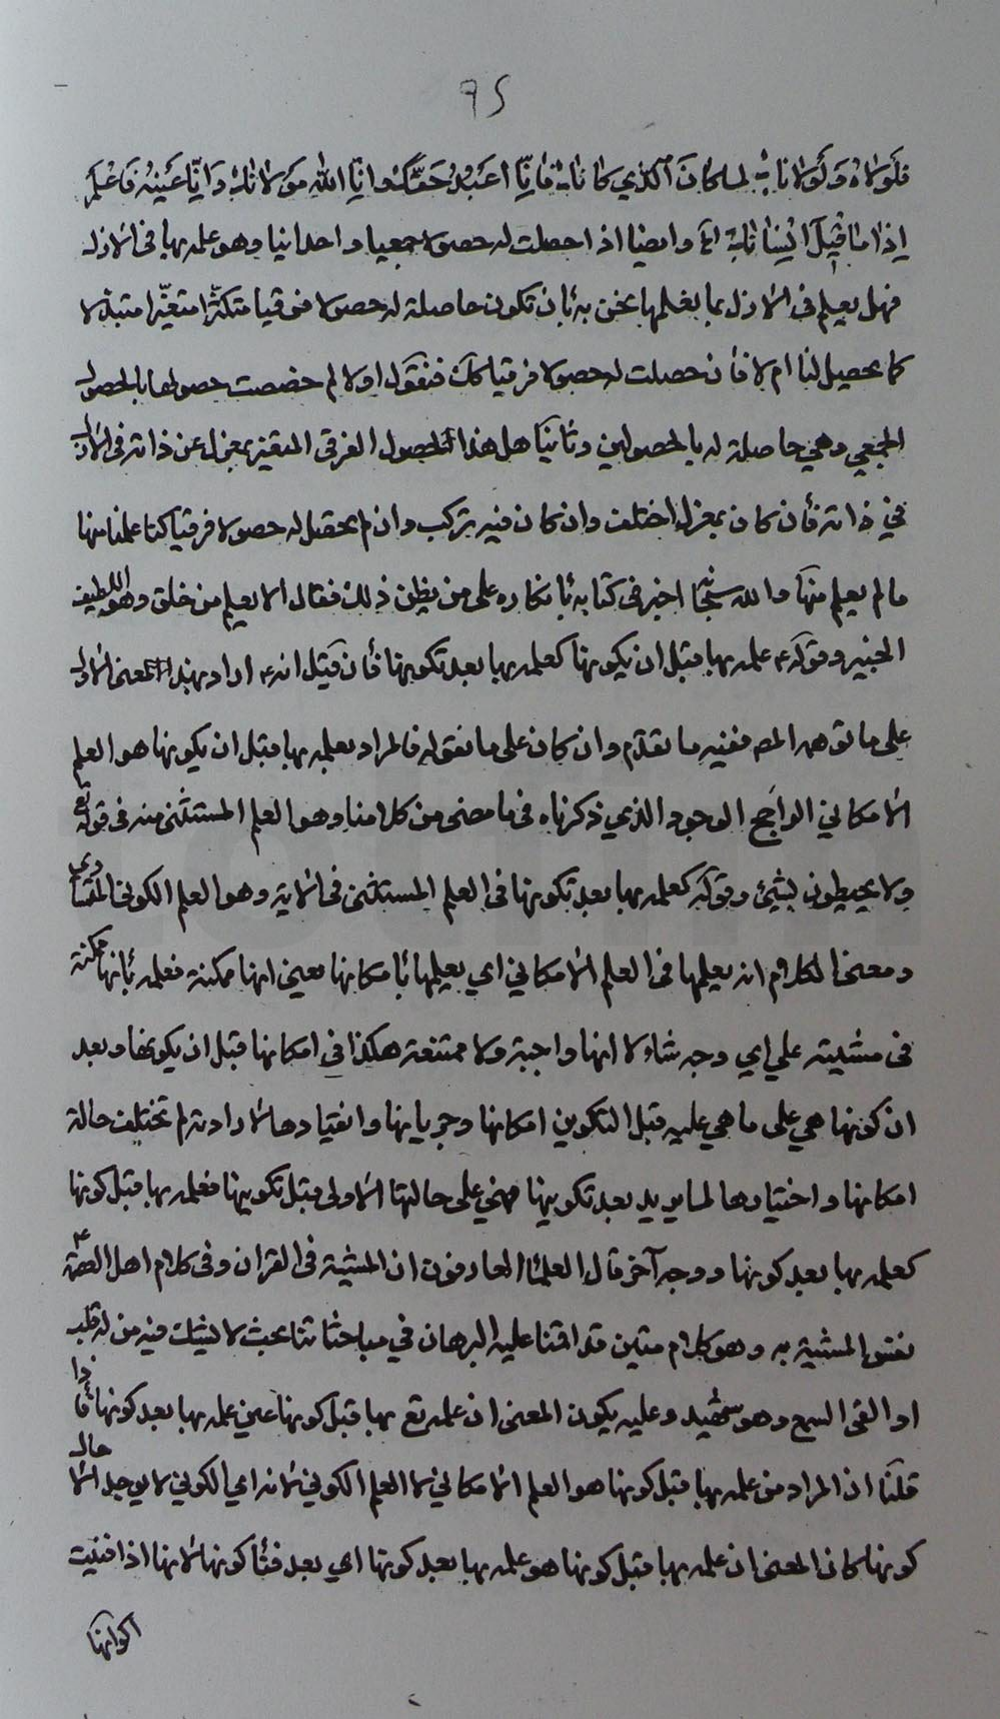 ٩٢
فلولاه ولولانا لما كان الذي كانا فإنا اعبد حقا وانا الله مولانا وانا عينه فاعلم
إذا ما قيل انسانا وايضا اذا حصلت له حصولا جمعيا وحدانيا وهو علمه بها في الازل
فهل يعلم في الازل بما يعلمها نحن به بان تكون حاصلة له حصولا فرقيا متكثرا متغيرا متبدلا
كما يحصل لنا ام لا فأن حصلت له حصولا فرقيا كك فنقول اولا لم خصصت حصولها بالحصول
الجمعي وهي حاصلة له بالحصولين وثانيا هل هذا الحصول الفرقي المتغير بمعزل عن ذاته في الازل
في ذاته فأن كان بمعزل اختلف وان كان فيه تركب وان لم يحصل له حصولا فرقيا كنا علمنا منها
ما لم يعلم منها والله سبحانه اخبر في كتابه بانكاره على من يظن ذلك فقال الا يعلم من خلق وهو اللطيف
الخبير وقوله ع علمه بها قبل ان يكونها كعلمه بها بعد تكوينها فأن قيل انه ع اراد بهذا المعنى الاول
على ما توهمه المص ففيه ما تقدم وان كان على ما نقوله فالمراد بعلمه بها قبل ان يكونها هو العلم
الامكاني الراجح الوجود الذي ذكرناه في ما مضى من كلامنا وهو العلم المستثنى منه في قوله تع
ولا يحيطون بشيئ وقوله كعلمه بها بعد تكوينها في العلم المستثنى في الاية وهو العلم الكوني المتساوي
ومعنى الكلام انه يعلمها في العلم الامكاني اي يعلمها بامكانها يعني انها ممكنة فعلمه بانها ممكنة
في مشيته على اي وجه شاء لا انها واجبة ولا ممتنعة هكذا في امكانها قبل ان يكونها وبعد
ان كونها هي على ما هي عليه قبل التكوين امكانها وجريانها وانقيادها لارادته لم تختلف حالة
امكانها واختيارها لما يريد بعد تكوينها فهي على حالتها الاولى قبل تكوينها فعلمه بها قبل كونها
كعلمه بها بعد كونها ووجه آخر قال العلماء العارفون ان المشية في القران وفي كلام اهل العصمة ع
نفس المشية به وهو كلام متين قد اقمنا عليه البرهان في مباحثاتنا بحيث لا يشك فيه من له قلب
او القى السمع وهو شهيد وعليه يكون المعنى ان علمه تع بها قبل كونها عين علمه بها بعد كونها فأذا
قلنا ان المراد من علمه بها قبل كونها هو العلم الامكاني لا العلم الكوني لانه اي الكوني لا يوجد الا حال
كونها كان المعنى ان علمه بها قبل كونها هو علمه بها بعد كونها اي بعد فناء كونها لانها اذا فنيت
اكوانها